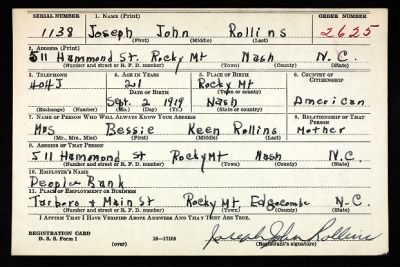 SERIAL NUMBER 1. NAME (Print) ORDER NUMBER
1138 Joseph John Rollins 2625
(First) (Middle) (Last)
2. ADDRESS (Print)
511 Hammond St. Rocky Mt Nash N.C.
(Number and street or R. F. D. number) (Town) (County) (State)
3. TELEPHONE 4. AGE IN YEARS 5. PLACE OF BIRTH 6. COUNTRY OF CITIZENSHIP
404J 21 Rocky Mt
DATE OF BIRTH (Town or county)
Sept. 2 1919 Nash American
(Exchange) (Number) (Mo.) (Day) (Yr.) (State or country)
7. NAME OF PERSON WHO WILL ALWAYS KNOW YOUR ADDRESS 8. RELATIONSHIP OF THAT PERSON
Mrs Bessie Keen Rollins Mother
(Mr., Mrs., Miss) (First) (Middle) (Last)
9. ADDRESS OF THAT PERSON
511 Hammond St Rocky Mt Nash N.C.
(Number and street or R. F. D. number) (Town) (County) (State)
10. EMPLOYER'S NAME
Peoples Bank
11. PLACE OF EMPLOYMENT OR BUSINESS
Tarboro + Main St Rocky Mt Edgecombe N-C.
(Number and street or R. F. D. number) (Town) (County) (State)
I AFFIRM THAT I HAVE VERIFIED ABOVE ANSWERS AND THAT THEY ARE TRUE.
REGISTRATION CARD Joseph John Rollins
D. S. S. Form 1 (over) 16—17105 (Registrant's signature)